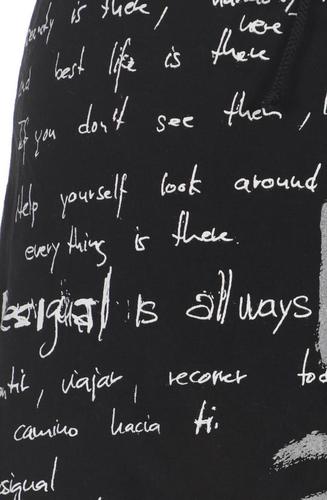 is there,
here
best life is there
If you don't see them,
Help yourself look around
everything is there.
Desigual is all ways
, viajar, recorrer tod
camino hacia ti.
esigual